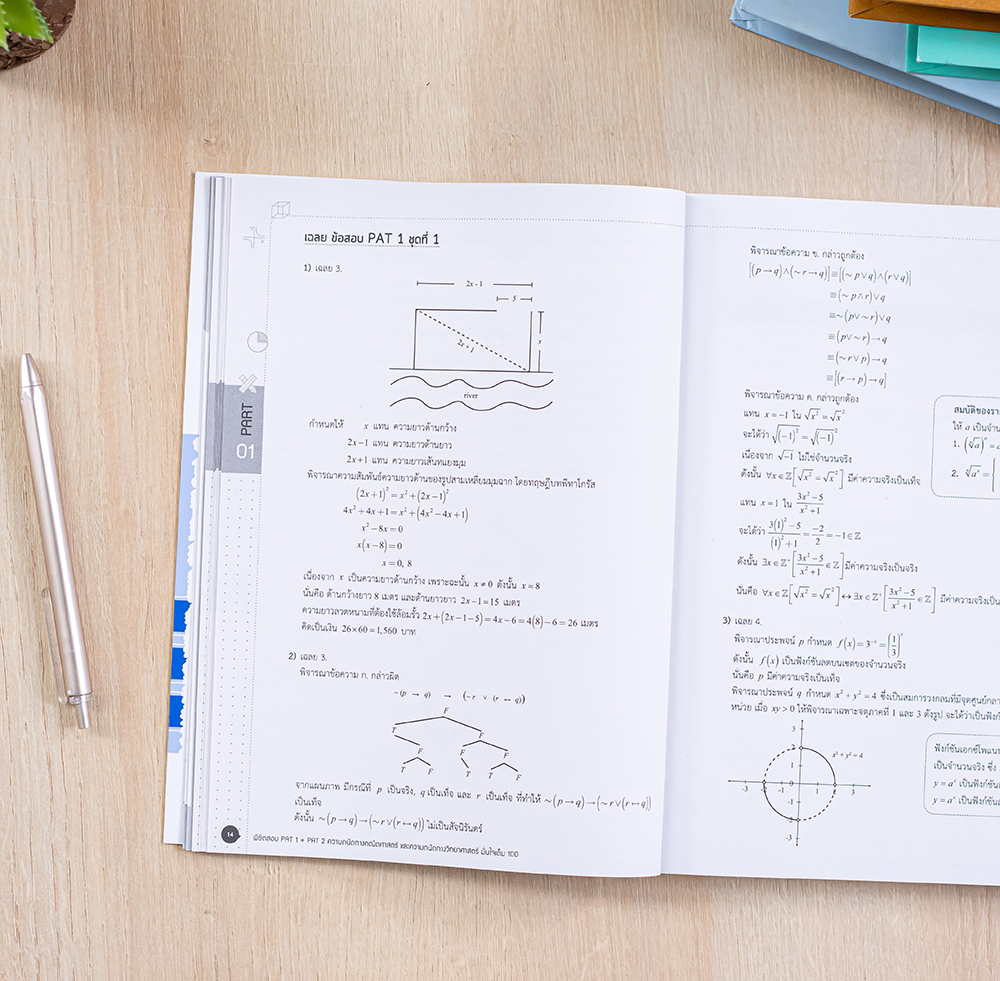 เฉลย ข้อสอบ PAT 1 ชุดที่ 1
1) เฉลย 3.
2x - 1
5
x
2x + 1
river
กำหนดให้ x แทน ความยาวด้านกว้าง
2x−1 แทน ความยาวด้านยาว
2x+1 แทน ความยาวเส้นทแยงมุม
พิจารณาความสัมพันธ์ความยาวด้านของรูปสามเหลี่ยมมุมฉาก โดยทฤษฎีบทพีทาโกรัส
(2x+1)² = x² + (2x−1)²
4x² + 4x + 1 = x² + (4x² − 4x + 1)
x² − 8x = 0
x(x−8) = 0
x = 0, 8
เนื่องจาก x เป็นความยาวด้านกว้าง เพราะฉะนั้น x ≠ 0 ดังนั้น x = 8
นั่นคือ ด้านกว้างยาว 8 เมตร และด้านยาวยาว 2x−1 = 15 เมตร
ความยาวลวดหนามที่ต้องใช้ล้อมรั้ว 2x + (2x−1−5) = 4x − 6 = 4(8) − 6 = 26 เมตร
คิดเป็นเงิน 26×60 = 1,560 บาท
2) เฉลย 3.
พิจารณาข้อความ ก. กล่าวผิด
~(p → q) → (~r ∨ (r ↔ q))
F
T F
F F F
T F T T F
จากแผนภาพ มีกรณีที่ p เป็นจริง, q เป็นเท็จ และ r เป็นเท็จ ที่ทำให้ ~(p → q) → (~r ∨ (r ↔ q))
เป็นเท็จ
ดังนั้น ~(p → q) → (~r ∨ (r ↔ q)) ไม่เป็นสัจนิรันดร์
14 พิชิตสอบ PAT 1 + PAT 2 ความถนัดทางคณิตศาสตร์ และความถนัดทางวิทยาศาสตร์ มั่นใจเต็ม 100
PART
01
พิจารณาข้อความ ข. กล่าวถูกต้อง
[(p → q) ∧ (~r → q)] ≡ [(~p ∨ q) ∧ (r ∨ q)]
≡ (~p ∧ r) ∨ q
≡ ~(p ∨ ~r) ∨ q
≡ (p ∨ ~r) → q
≡ (~r ∨ p) → q
≡ [(r → p) → q]
พิจารณาข้อความ ค. กล่าวถูกต้อง
แทน x = −1 ใน √x² = √x²
จะได้ว่า √(−1)² = √(−1)²
เนื่องจาก √−1 ไม่ใช่จำนวนจริง
ดังนั้น ∀x ∈ ℤ[√x² = √x²] มีค่าความจริงเป็นเท็จ
แทน x = 1 ใน (3x²−5)/(x²+1)
จะได้ว่า (3(1)²−5)/((1)²+1) = −2/2 = −1 ∈ ℤ
ดังนั้น ∃x ∈ ℤ⁺[(3x²−5)/(x²+1) ∈ ℤ] มีค่าความจริงเป็นจริง
นั่นคือ ∀x ∈ ℤ[√x² = √x²] ↔ ∃x ∈ ℤ⁺[(3x²−5)/(x²+1) ∈ ℤ] มีค่าความจริงเป็น
3) เฉลย 4.
พิจารณาประพจน์ p กำหนด f(x) = 3⁻ˣ = (1/3)ˣ
ดังนั้น f(x) เป็นฟังก์ชันลดบนเซตของจำนวนจริง
นั่นคือ p มีค่าความจริงเป็นเท็จ
พิจารณาประพจน์ q กำหนด x² + y² = 4 ซึ่งเป็นสมการวงกลมที่มีจุดศูนย์กลา
หน่วย เมื่อ xy > 0 ให้พิจารณาเฉพาะจตุภาคที่ 1 และ 3 ดังรูป จะได้ว่าเป็นฟังก์
x² + y² = 4
3
2
1
-3 -2 -1 1 2 3
-1
-2
-3
สมบัติของรา
ให้ a เป็นจำน
1. (ⁿ√a)ⁿ = a
2. ⁿ√aⁿ =
ฟังก์ชันเอกซ์โพเนน
เป็นจำนวนจริง ซึ่ง
y = aˣ เป็นฟังก์ชัน
y = aˣ เป็นฟังก์ชัน